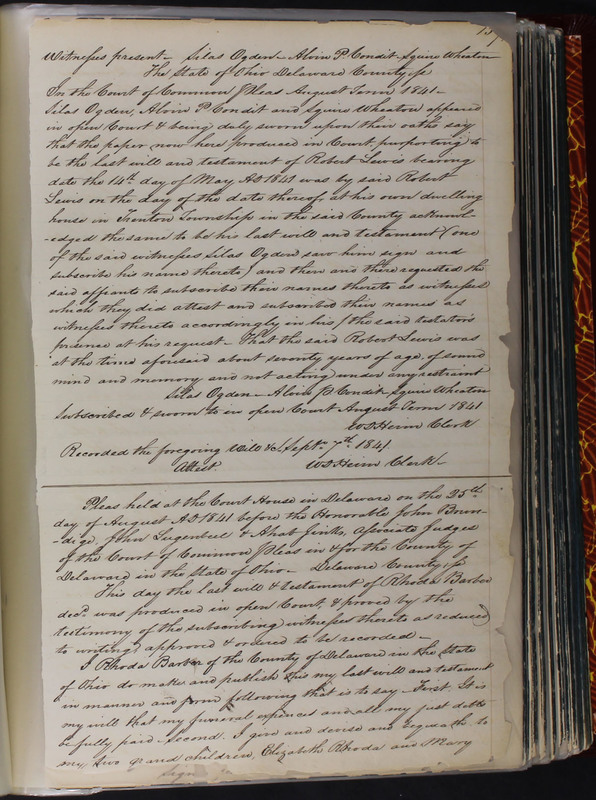 137
Witnesses present - Silas Ogden - Alvin P. Condit - Squire Wheaton
The State of Ohio Delaware County, ss
In the Court of Common Pleas August Term 1841 -
Silas Ogden, Alvin P Condit and Squire Wheaton appeared
in open Court & being duly sworn upon their oaths say
that the paper now here produced in Court, purporting to
be the last will and testament of Robert Lewis bearing
date the 14th day of May AD 1841 was by said Robert
Lewis on the day of the date thereof, at his own dwelling
house in Trenton Township in the said County acknowl-
-edged the same to be his last will and testament (one
of the said witnesses Silas Ogden saw him sign and
subscribe his name thereto) and then and there requested the
said affiants to subscribe their names thereto as witnesses
which they did attest and subscribed their names as
witnesses thereto accordingly in his (the said testators
presence at his request - That the said Robert Lewis was
at the time aforesaid about seventy years of age, of sound
mind and memory and not acting under any restraint
Silas Ogden - Alvin P Condit - Squire Wheaton
Subscribed & sworn to in open Court August Term 1841
WD Heim Clerk
Recorded the foregoing Will &c. Septr. 7th 1841
Attest WD Heim Clerk -
Pleas held at the Court House in Delaware on the 25th
day of August AD 1841 before the Honorable John Brun-
-dige, John Lugenbeel & Ahab Jinks, Associate Judges
of the Court of Common Pleas in & for the County of
Delaware in the State of Ohio - Delaware County, ss
This day the last will & testament of Rhoda Barber
decd. was produced in open Court, & proved by the
testimony of the subscribing witnesses thereto as reduced
to writing, approved & ordered to be recorded -
I Rhoda Barber of the County of Delaware in the State
of Ohio do make and publish this my last will and testament
in manner and form following that is to say - First. It is
my will that my funeral expences and all my just debts
be fully paid - Second. I give and devise and bequeath to
my two grand children, Elizabeth Rhoda and Mary